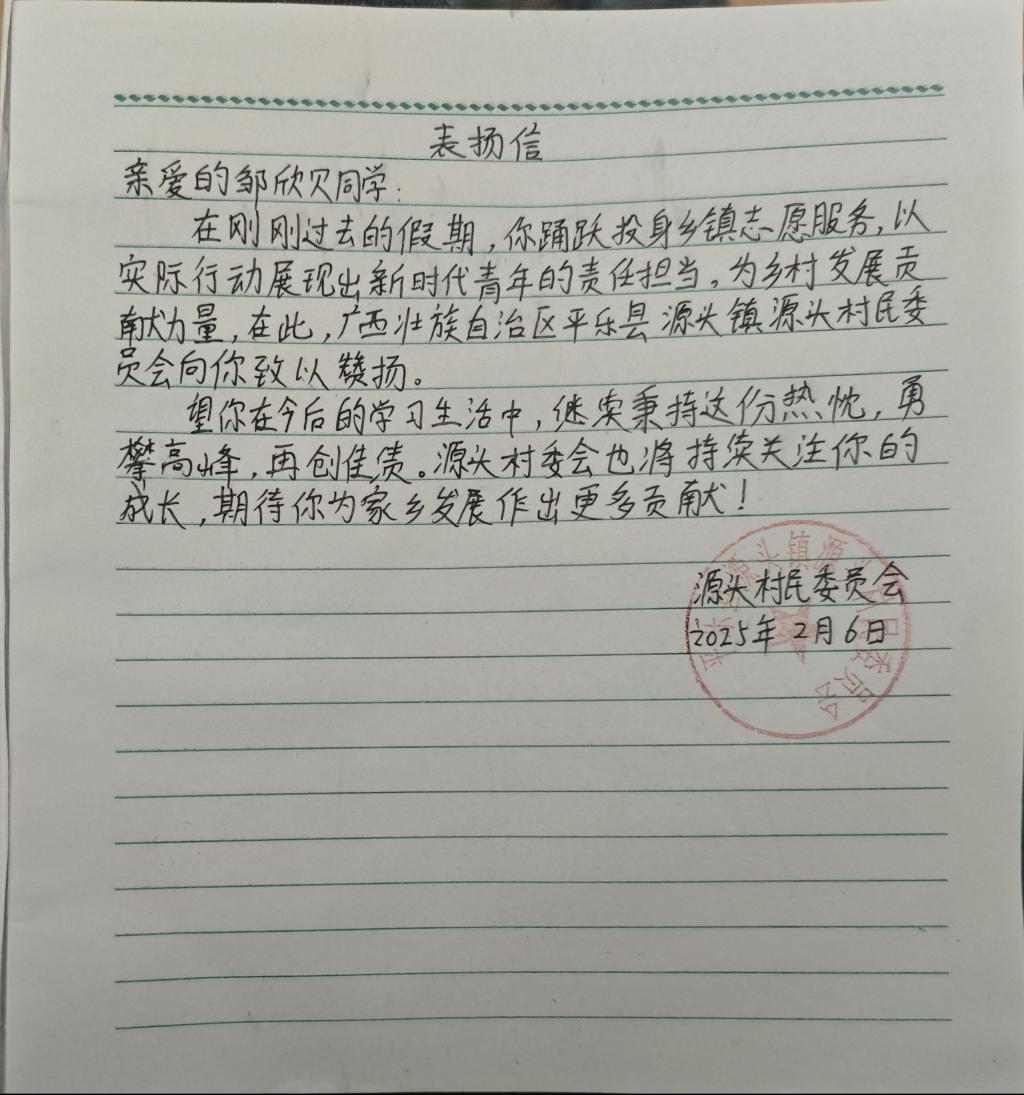 表扬信
亲爱的邹欣贝同学：
在刚刚过去的假期，你踊跃投身乡镇志愿服务，以
实际行动展现出新时代青年的责任担当。为乡村发展贡
献力量，在此，广西壮族自治区平乐县源头镇源头村民委
员会向你致以赞扬。
望你在今后的学习生活中，继续秉持这份热忱，勇
攀高峰，再创佳绩。源头村委会也将持续关注你的
成长，期待你为家乡发展作出更多贡献！
源头村民委员会
2025年2月6日
平乐县源头镇源头村民委员会